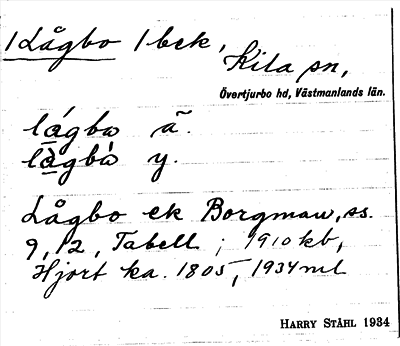 1 Lågbo 1 bek,
Kila sn,
Övertjurbo hd, Västmanlands län.
lågbo ä.
lågbò y.
Lågbo ek Borgman, ss.
9, 12, Tabell; 1910 kb,
Hjort ka. 1805, 1934 ml
HARRY STÅHL 1934